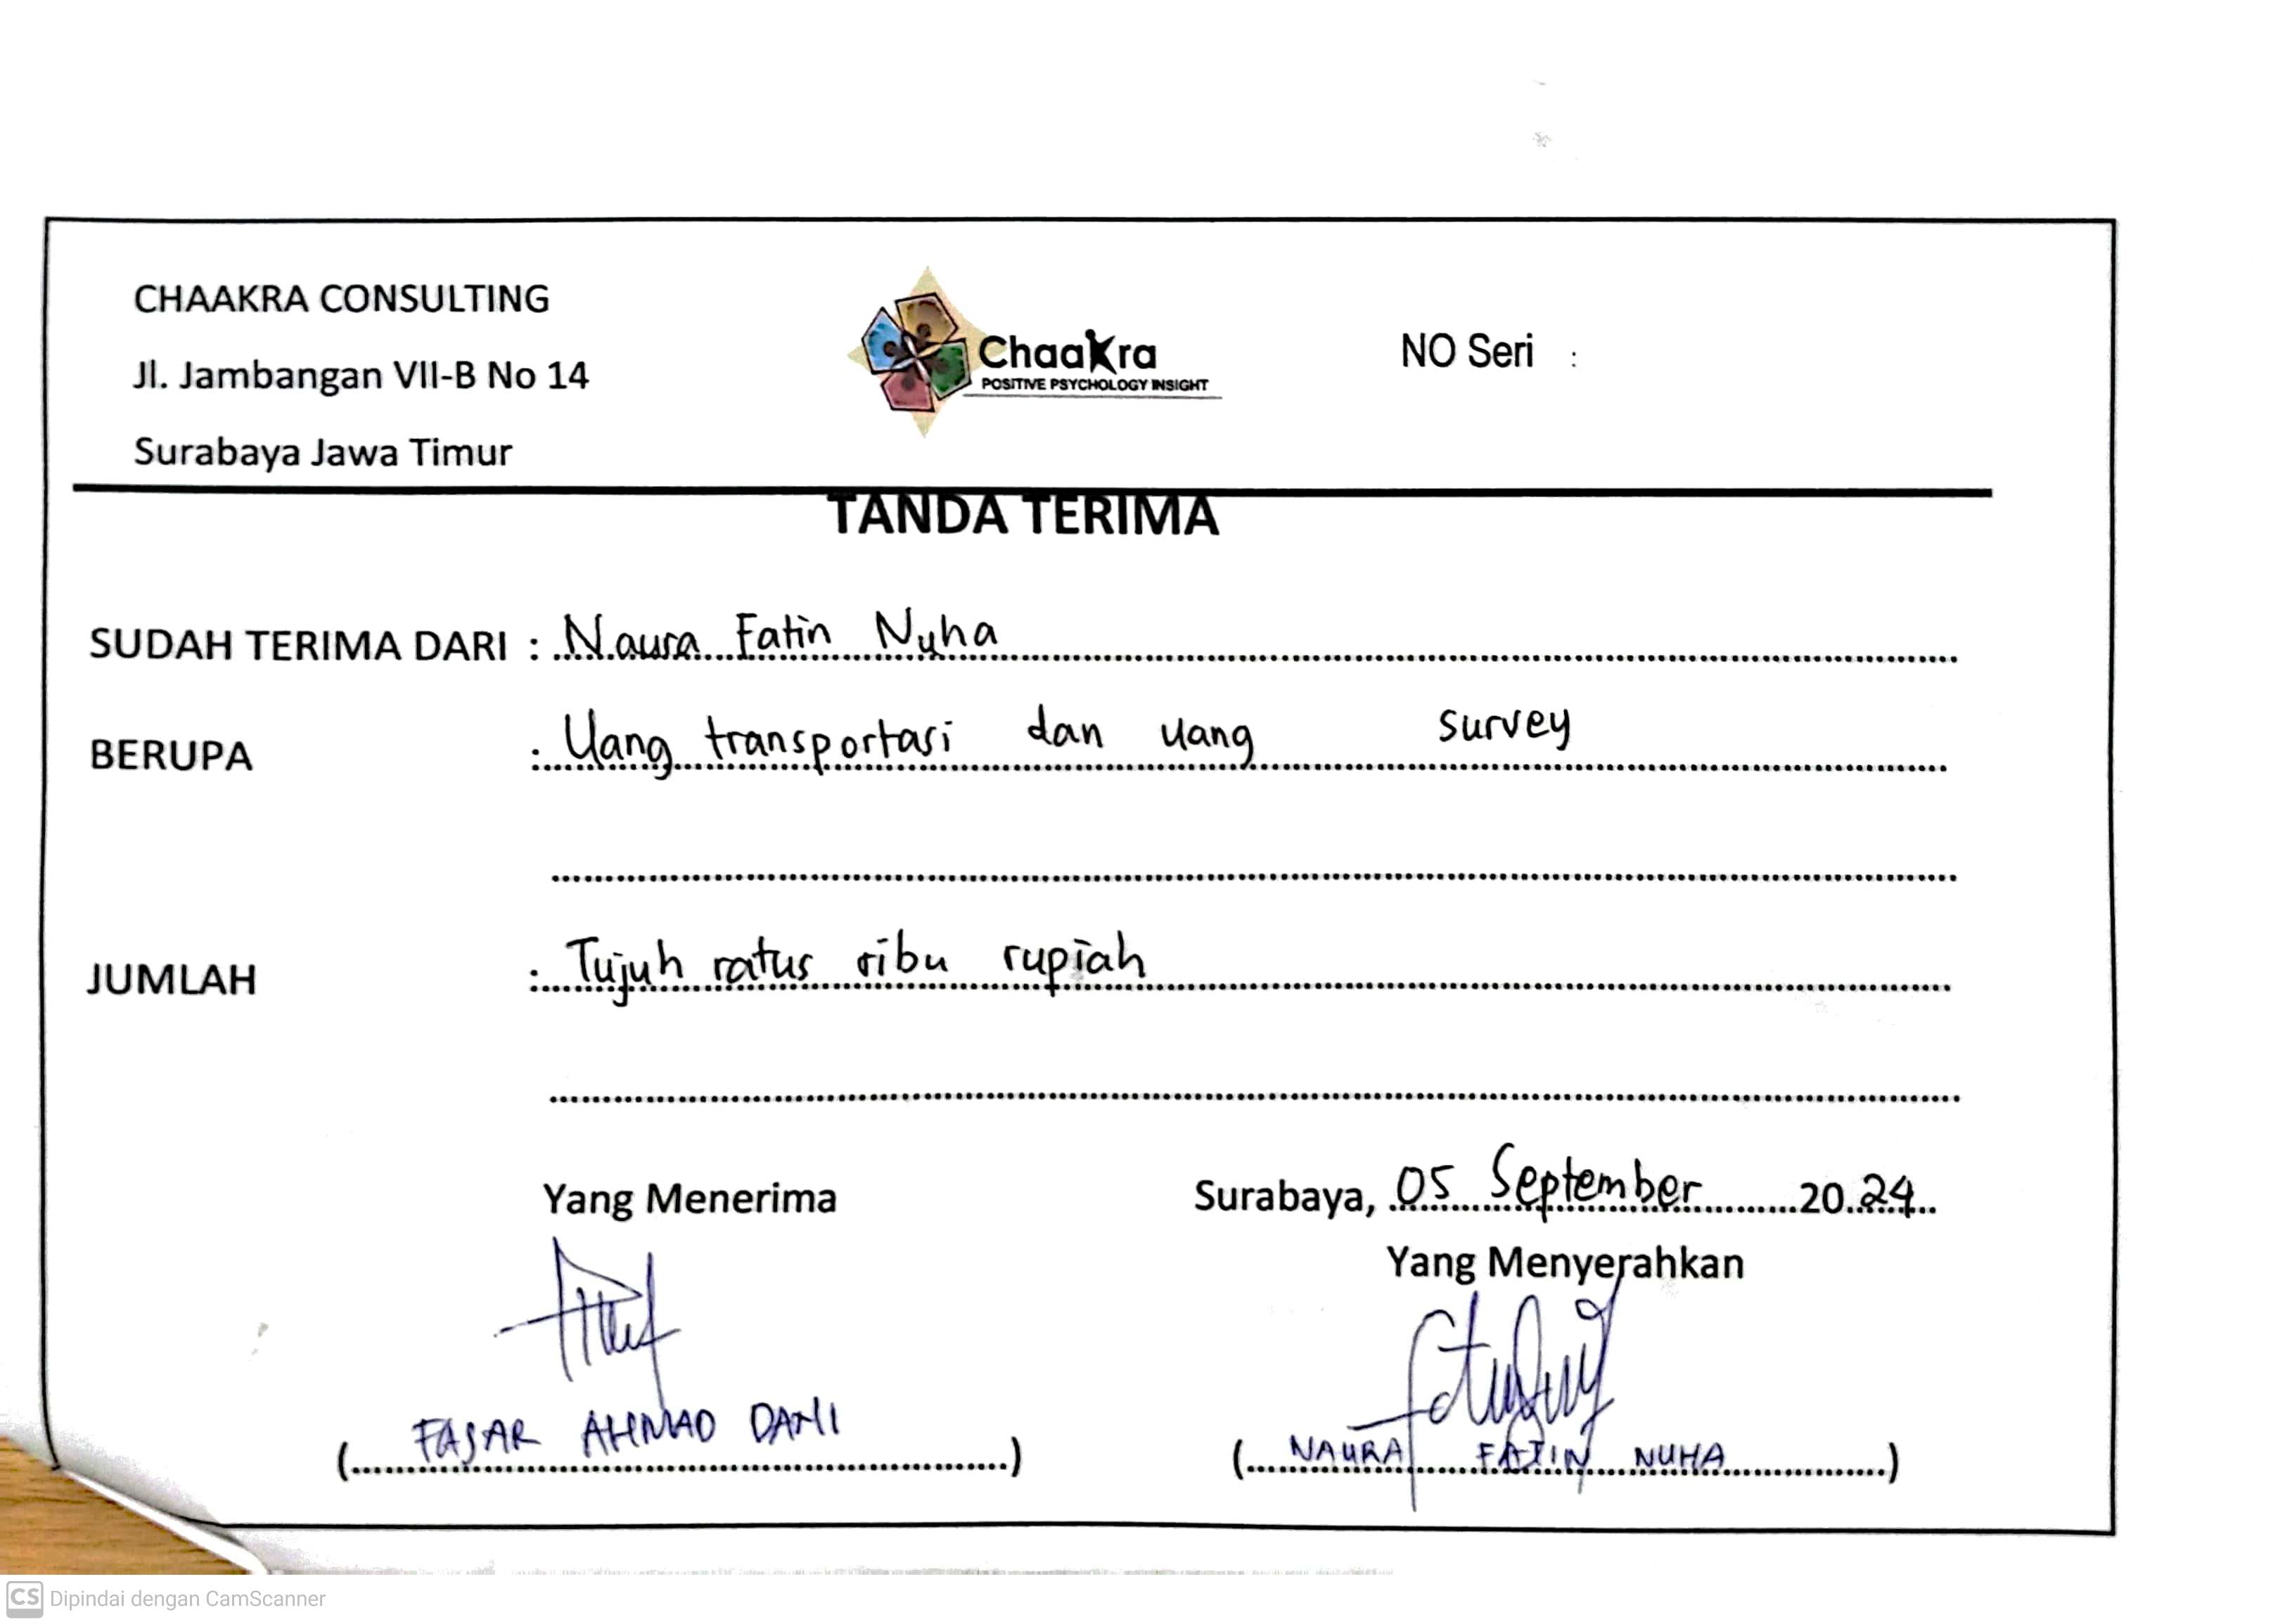 CHAAKRA CONSULTING
Jl. Jambangan VII-B No 14
Surabaya Jawa Timur
Chaakra
POSITIVE PSYCHOLOGY INSIGHT
NO Seri :
TANDA TERIMA
SUDAH TERIMA DARI : Naura Fatin Nuha
BERUPA : Uang transportasi dan uang survey
JUMLAH : Tujuh ratus ribu rupiah
Yang Menerima
Surabaya, 05 September 2024
Yang Menyerahkan
(FAJAR AHMAD DANI)
(NAURA FATIN NUHA)
CS Dipindai dengan CamScanner